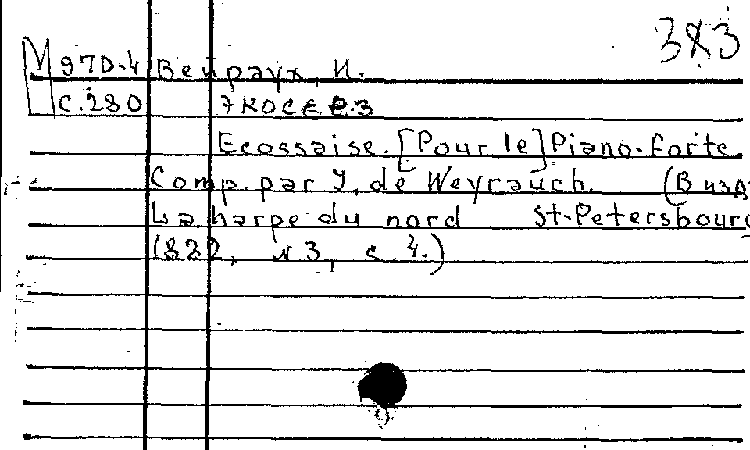 383
М 970-4 Вейраух, И.
с.280 Экоссез
Ecossaise. [Pour le] Piano-forte
Comp. par J. de Weyrauch. (В изд.
La harpe du nord St-Petersbourg
1822, N 3, с 4.)